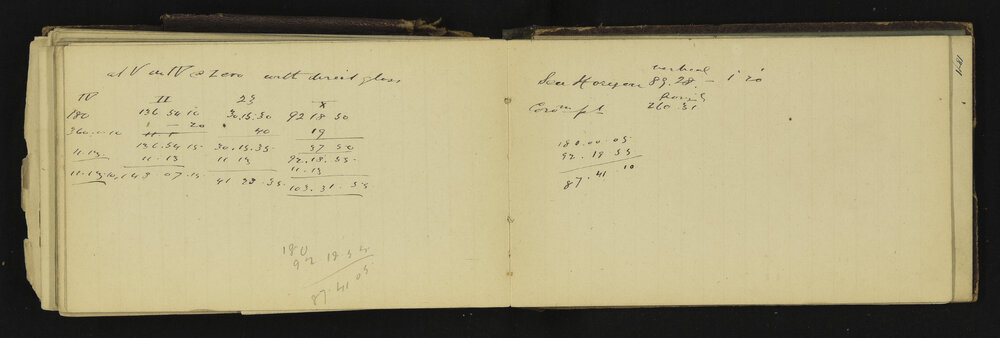 at V with direct glass
IV II 23 X
180 136 54 10 30.15.30 92 18 50
360.  10 1 — 20 40 19
136.54 15 30.15.35 37 50
11.13 11 - 13 11 13 92.18.55
11.13 143 07.15 41 28.35 11.13
103.31.55
180
92 18 55
87.41 05
vertical
Sea Horizon 89.28. — 1' 20
Horiz
260.31
180.00.05
92.18 55
87.41.10